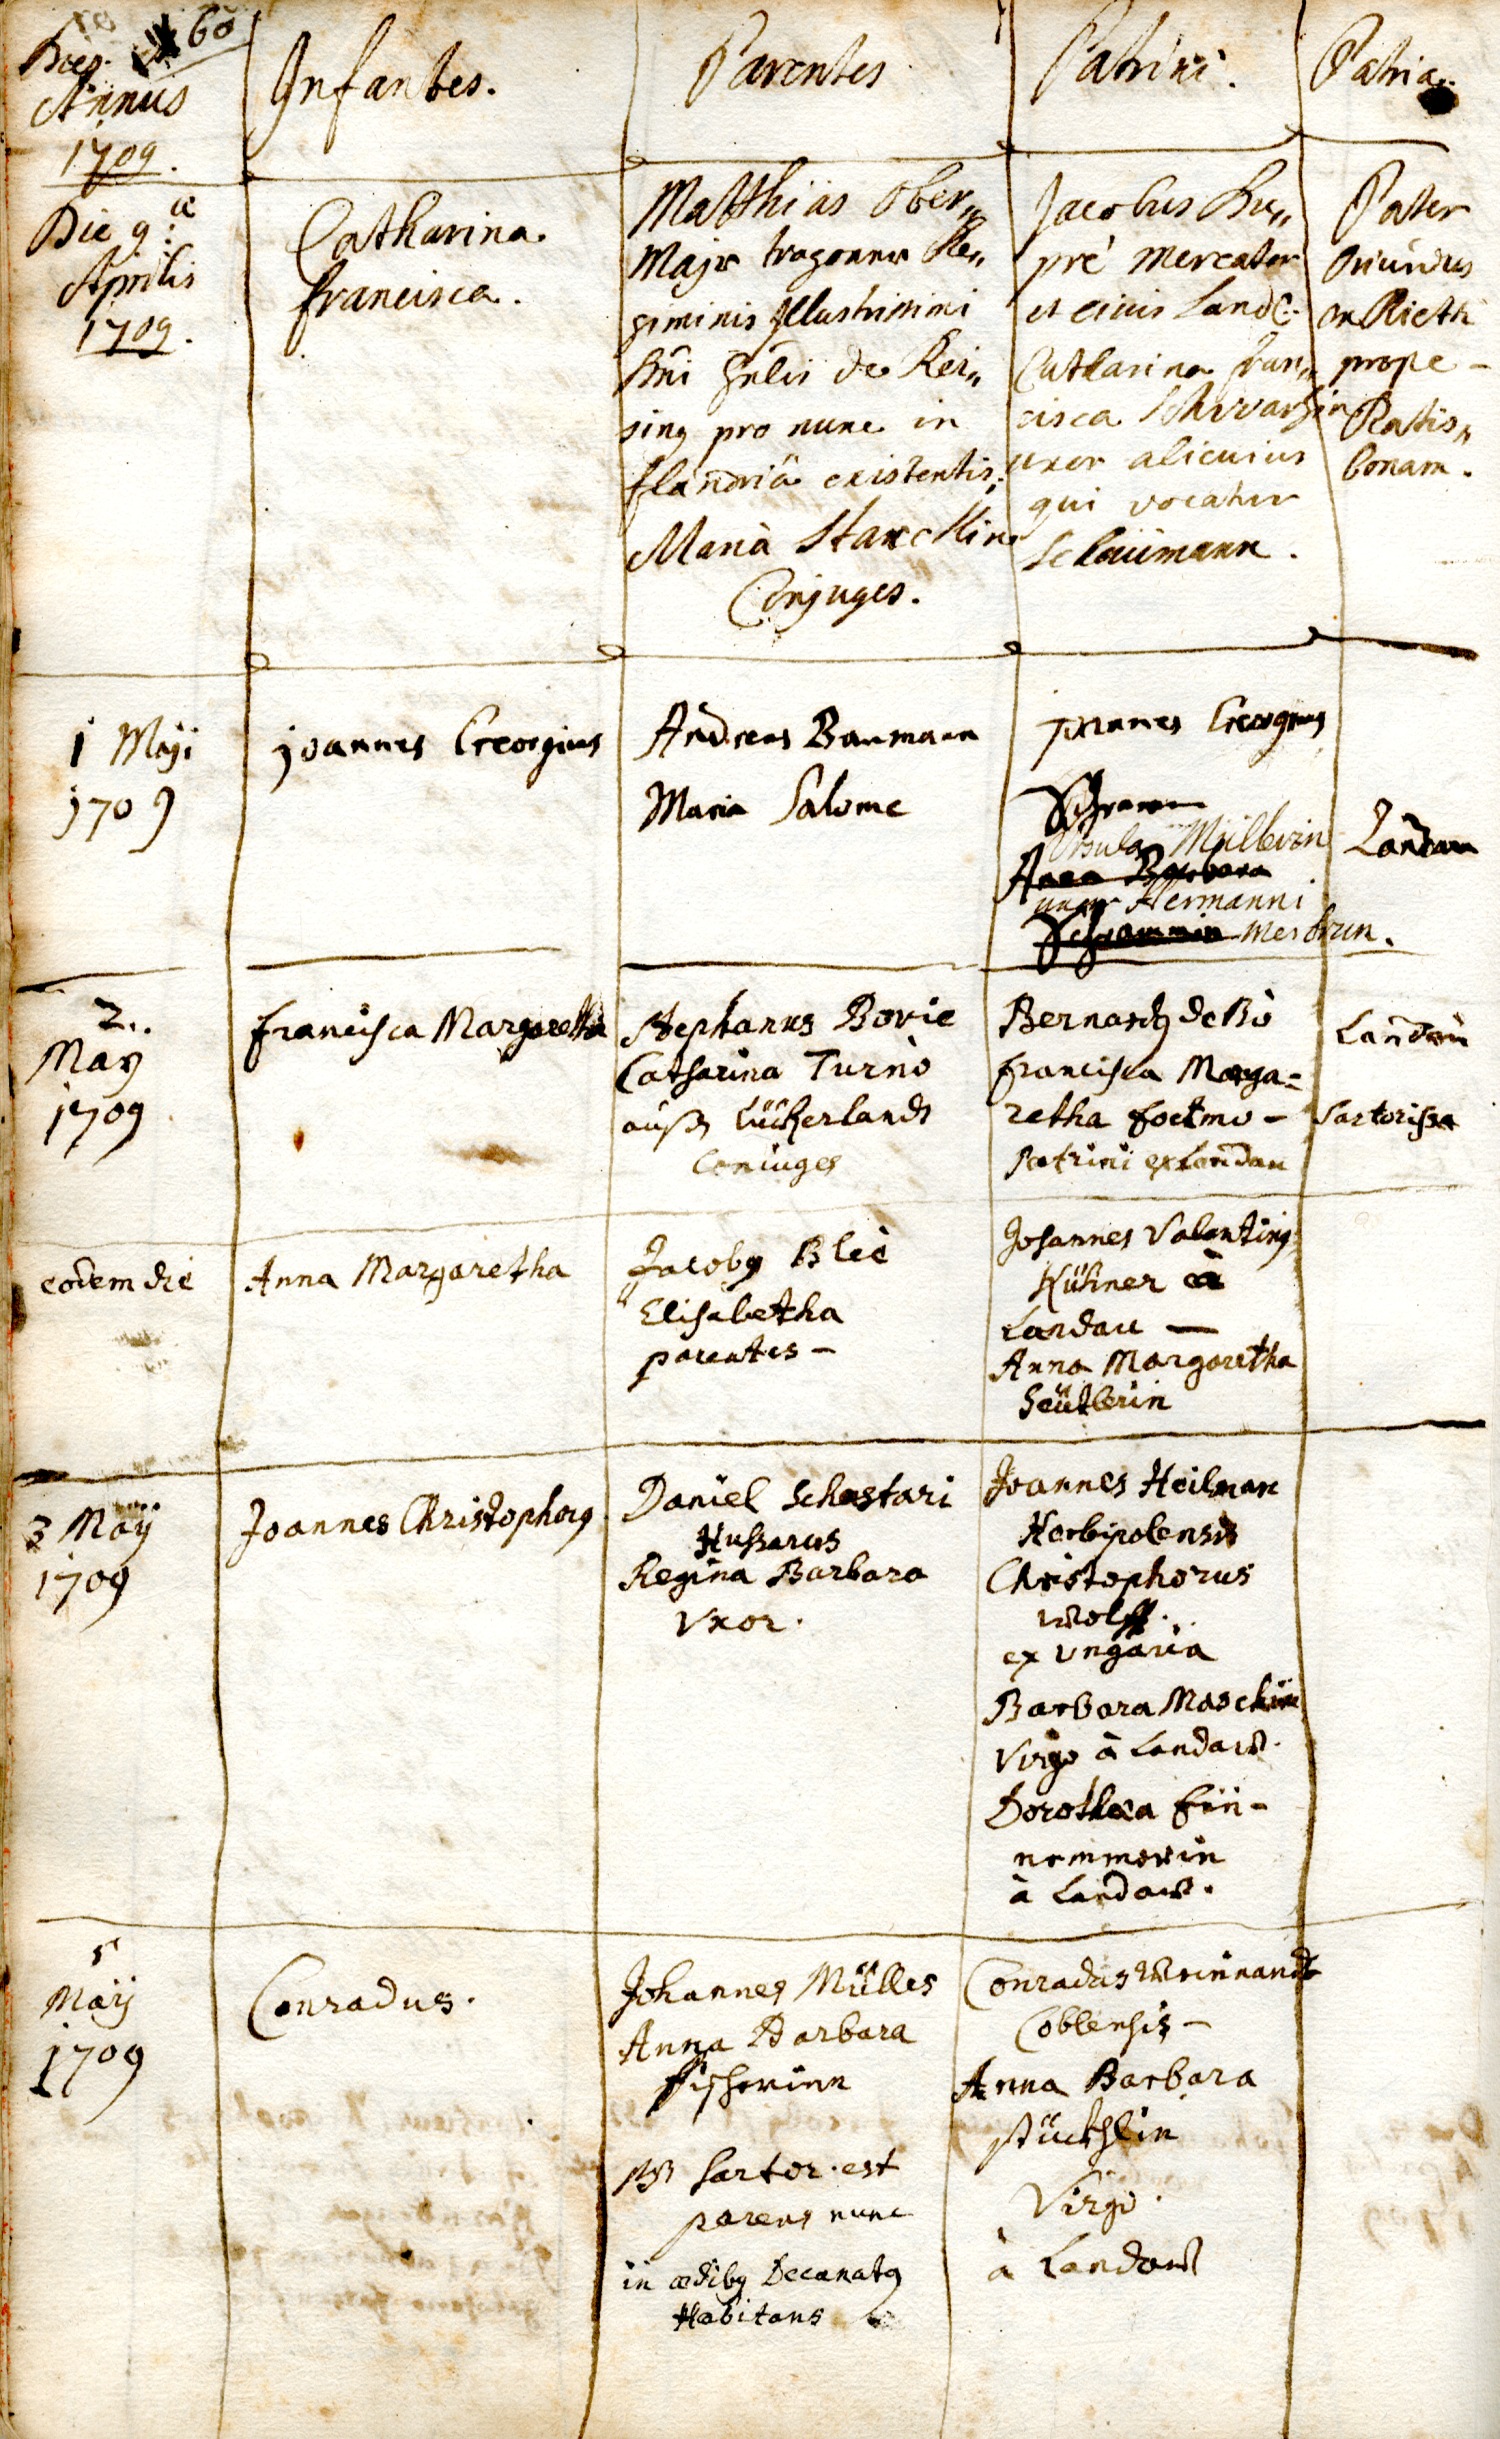 60
Dies.
Annus
1709.
Infantes.
Parentes
Patrini.
Patria.
Die 9:a
Aprilis
1709.
Catharina
francisca.
Matthias Ober„
Majr tragoner Re„
giminis Illustrissimi
de Rei„
sing pro nunc in
flandriâ existentis;
Maria
Conjuges.
Jacobus Du„
pré Mercator
et civis Land:
Catharina fran„
cisca Schwarzin
uxor alicuius
qui vocatur
Schaumann.
Pater
oriundus
ex Rieth
prope -
Ratis„
bonam.
1 Maji
1709
joannes Georgius
Andreas Baumann
Maria Salome
joannes Georgius
Schramm
Ursula Müllerin
Anna Barbara
uxor Hermanni
Schrammin Mesbrun.
Landau
2..
Maÿ
1709
francisca Margaretha
Stephanus Borie
Catharina Turnò
auß Lückerlandt
Coniuges
Bernardg de Bò
francisca Marga=
retha foetmo-
Patrini ex Landau
Landau
Sartorissa
eodem die
Anna Margaretha
Jacobg Bleè
Elisabetha
parentes -
Johannes Valenting
Kühner à
Landau -
Anna Margaretha
Seütterin
3 Maÿ
1709
Joannes Christophorg.
Daniel Schestari
Hußarus
Regina Barbara
Vxor.
Joannes Heilman
Herbipolensis
Christophorus
Wolff.
ex Vngaria
Barbara Maschin
Virgo à Landaw.
Dorothea fin-
nemmerin
à Landaw.
5
Maÿ
1709
Conradus.
Johannes Mülles
Anna Barbara
fischerinn
NB Sartor est
parens nunc
in ædibg Decanatg
Habitans
Conradus Weinnandt
Coblensis -
Anna Barbara
stückhlin
Virgo.
à Landaw